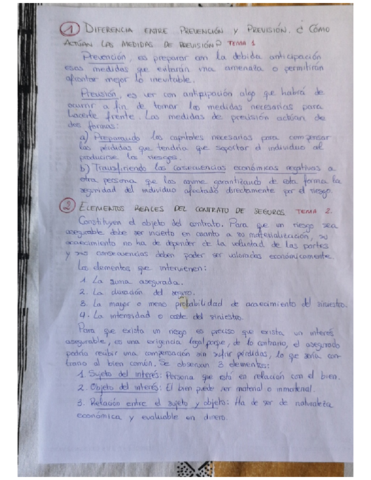 1 DIFERENCIA ENTRE PREVENCIÓN Y PREVISIÓN. ¿CÓMO
ACTÚAN LAS MEDIDAS DE PREVISIÓN? TEMA 1
Prevención, es preparar con la debida anticipación
esas medidas que evitarán una amenaza o permitirán
afrontar mejor lo inevitable.
Previsión, es ver con anticipación algo que habrá de
ocurrir a fin de tomar las medidas necesarias para
hacerle frente. Las medidas de previsión actúan de
dos formas:
a) Preparando los capitales necesarios para compensar
las pérdidas que tendría que soportar el individuo al
producirse los riesgos.
b) Transfiriendo las consecuencias económicas negativas a
otra persona que las asume garantizando de esta forma la
seguridad del individuo afectado directamente por el riesgo.
2 ELEMENTOS REALES DEL CONTRATO DE SEGUROS TEMA 2
Constituyen el objeto del contrato. Para que un riesgo sea
asegurable debe ser incierto en cuanto a su materialización, su
acaecimiento no ha de depender de la voluntad de las partes
y sus consecuencias deben poder ser valoradas económicamente.
Los elementos que intervienen:
1. La suma asegurada.
2. La duración del seguro.
3. La mayor o menor probabilidad de acaecimiento del siniestro.
4. La intensidad o coste del siniestro.
Para que exista un riesgo es preciso que exista un interés
asegurable, es una exigencia legal porque, de lo contrario, el asegurado
podría recibir una compensación sin sufrir pérdidas, lo que sería con-
trario al bien común. Se observan 3 elementos:
1. Sujeto del interés: Persona que está en relación con el bien.
2. Objeto del interés: El bien puede ser material o inmaterial.
3. Relación entre el sujeto y objeto: Ha de ser de naturaleza
económica y evaluable en dinero.